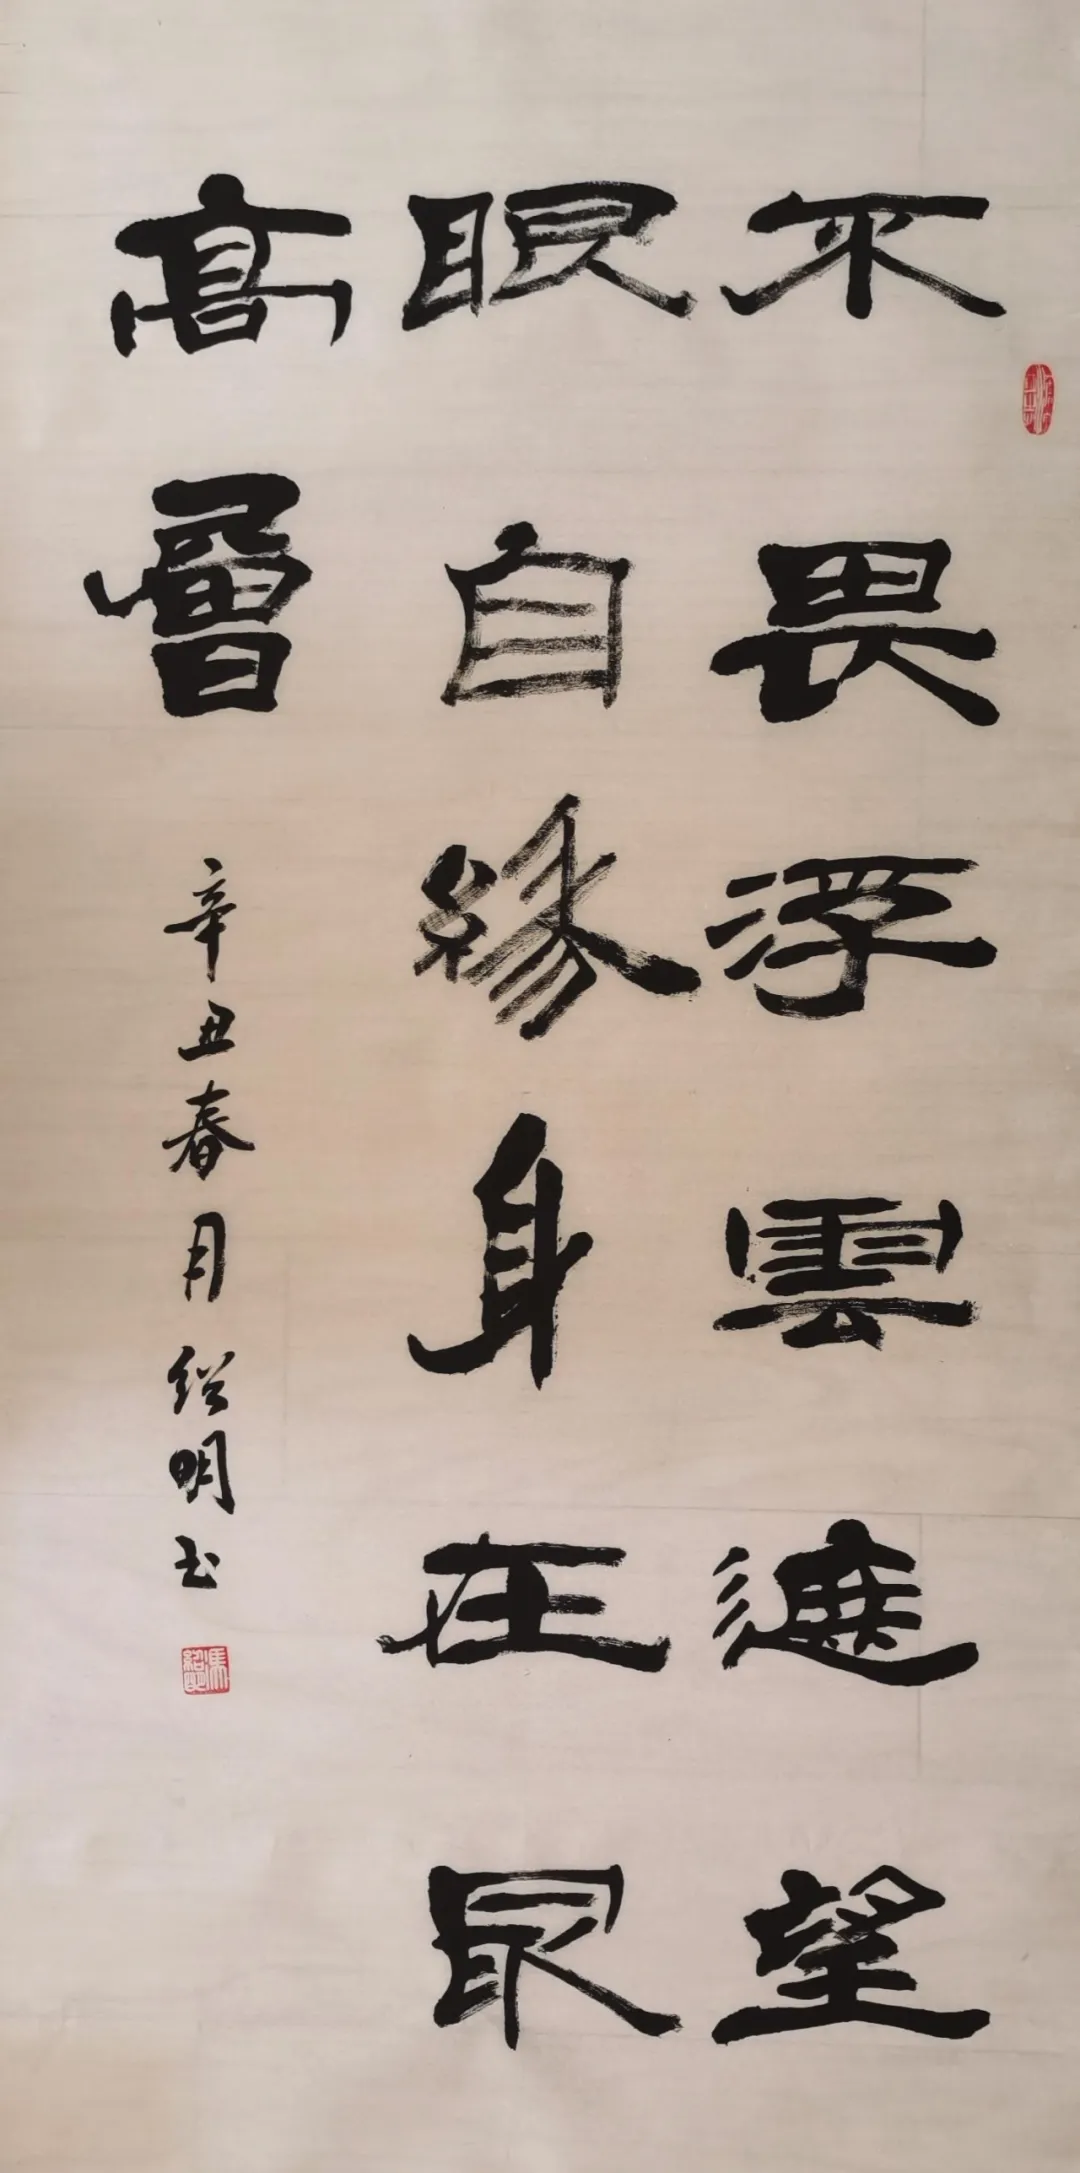 不畏浮雲遮望
眼自緣身在最
高層
辛丑春月绍明书